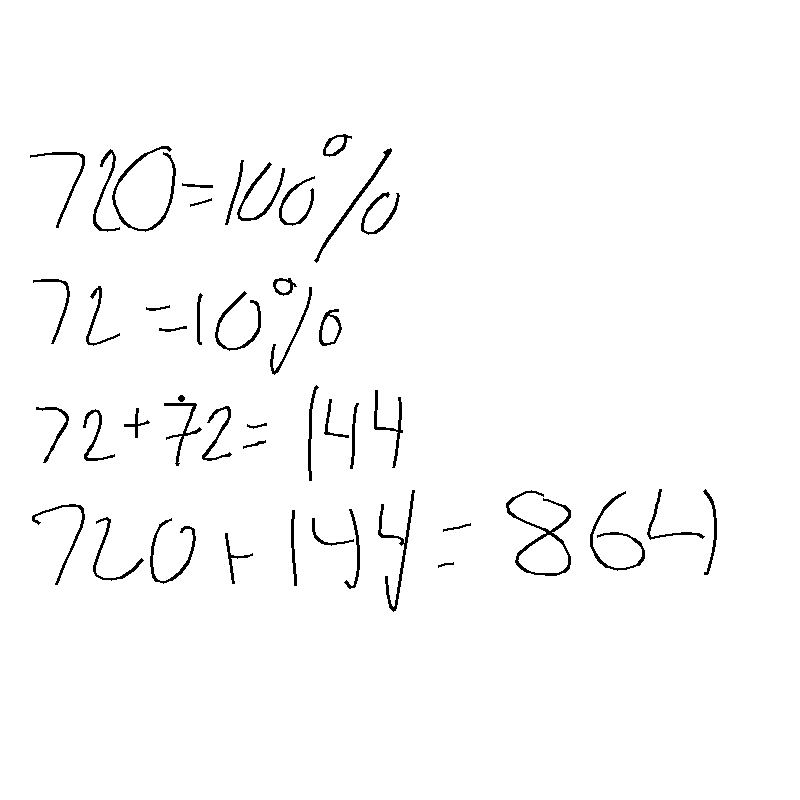 720=100%
72=10%
72+72=144
720+144=864